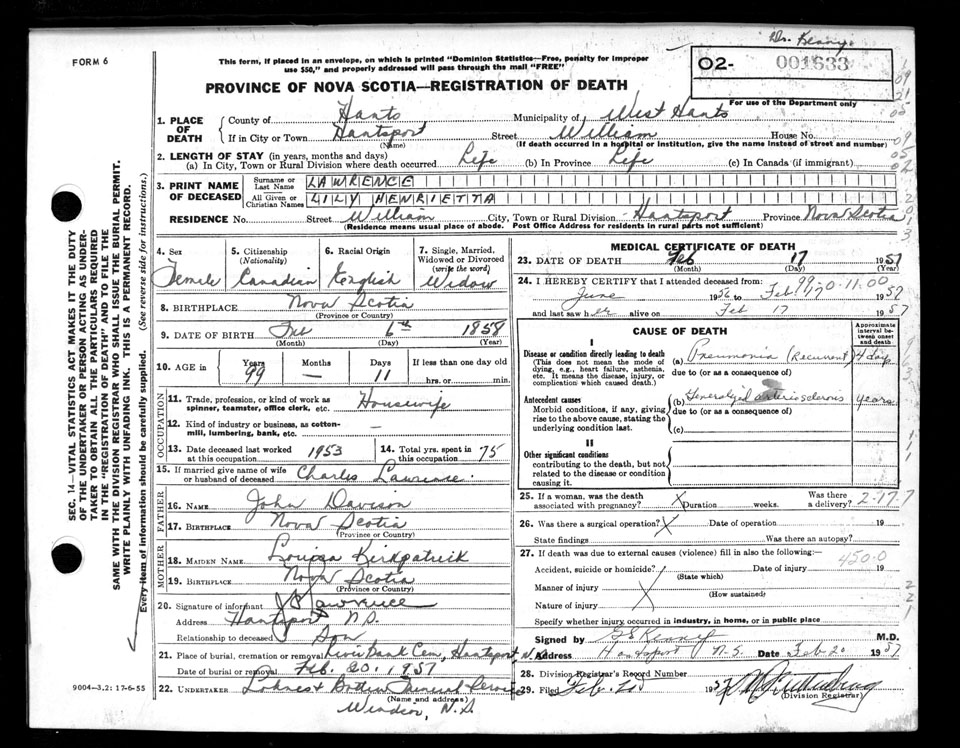 Dr. Kenny
FORM 6
This form, if placed in an envelope, on which is printed "Dominion Statistics—Free, penalty for improper
use $50," and properly addressed will pass through the mail "FREE"
02- 001633
For use of the Department only
PROVINCE OF NOVA SCOTIA—REGISTRATION OF DEATH
1. PLACE OF DEATH
County of Hants Municipality of West Hants
If in City or Town Hantsport Street William House No.
(Name) (If death occurred in a hospital or institution, give the name instead of street and number)
2. LENGTH OF STAY (in years, months and days)
(a) In City, Town or Rural Division where death occurred Life (b) In Province Life (c) In Canada (if immigrant)
3. PRINT NAME OF DECEASED
Surname or Last Name LAWRENCE
All Given or Christian Names LILY HENRIETTA
RESIDENCE No. Street William City, Town or Rural Division Hantsport Province Nova Scotia
(Residence means usual place of abode. Post Office Address for residents in rural parts not sufficient)
4. Sex Female
5. Citizenship (Nationality) Canadian
6. Racial Origin English
7. Single, Married, Widowed or Divorced (write the word) Widow
8. BIRTHPLACE Nova Scotia
(Province or Country)
9. DATE OF BIRTH 6th 1858
(Month) (Day) (Year)
10. AGE in Years 99 Months — Days 11 If less than one day old hrs. or min.
OCCUPATION
11. Trade, profession, or kind of work as spinner, teamster, office clerk, etc. Housewife
12. Kind of industry or business, as cotton-mill, lumbering, bank, etc. —
13. Date deceased last worked at this occupation 1953
14. Total yrs. spent in this occupation 75
15. If married give name of wife or husband of deceased Charles Lawrence
FATHER
16. NAME John Davison
17. BIRTHPLACE Nova Scotia
(Province or Country)
MOTHER
18. MAIDEN NAME Louisa Kirkpatrick
19. BIRTHPLACE Nova Scotia
(Province or Country)
20. Signature of informant Lawrence
Address Hantsport N.S.
Relationship to deceased Son
21. Place of burial, cremation or removal River Bank Cem, Hantsport, N.S.
Date of burial or removal Feb. 20. 1957
22. UNDERTAKER Funeral Service
(Name and address)
Windsor, N.S.
9004—3.2: 17-6-55
SEC. 14—VITAL STATISTICS ACT MAKES IT THE DUTY
OF THE UNDERTAKER OR PERSON ACTING AS UNDER-
TAKER TO OBTAIN ALL THE PARTICULARS REQUIRED
IN THE "REGISTRATION OF DEATH" AND TO FILE THE
SAME WITH THE DIVISION REGISTRAR WHO SHALL ISSUE THE BURIAL PERMIT.
WRITE PLAINLY WITH UNFADING INK. THIS IS A PERMANENT RECORD.
Every item of information should be carefully supplied. (See reverse side for instructions.)
MEDICAL CERTIFICATE OF DEATH
23. DATE OF DEATH Feb 17 1957
(Month) (Day) (Year)
24. I HEREBY CERTIFY that I attended deceased from:
June 1956 to Feb 17 1957
and last saw her alive on Feb 17 1957
CAUSE OF DEATH
Approximate interval between onset and death
I
Disease or condition directly leading to death
(This does not mean the mode of dying, e.g., heart failure, asthenia, etc. It means the disease, injury, or complication which caused death.)
(a) Pneumonia (Recurrent) 4 days
due to (or as a consequence of)
Antecedent causes
Morbid conditions, if any, giving rise to the above cause, stating the underlying condition last.
(b) Generalized arteriosclerosis years
due to (or as a consequence of)
(c)
II
Other significant conditions
contributing to the death, but not related to the disease or condition causing it.
25. If a woman, was the death associated with pregnancy? X Duration weeks. Was there a delivery? 2-17.7
26. Was there a surgical operation? X Date of operation 19
State findings Was there an autopsy?
27. If death was due to external causes (violence) fill in also the following:—
450.0
Accident, suicide or homicide? Date of injury 19
(State which)
Manner of injury
(How sustained)
Nature of injury
Specify whether injury occurred in industry, in home, or in public place
Signed by M.D.
Address Hantsport N.S. Date Feb 20 1957
28. Division Registrar's Record Number
29. Filed Feb. 20 1957
(Division Registrar)